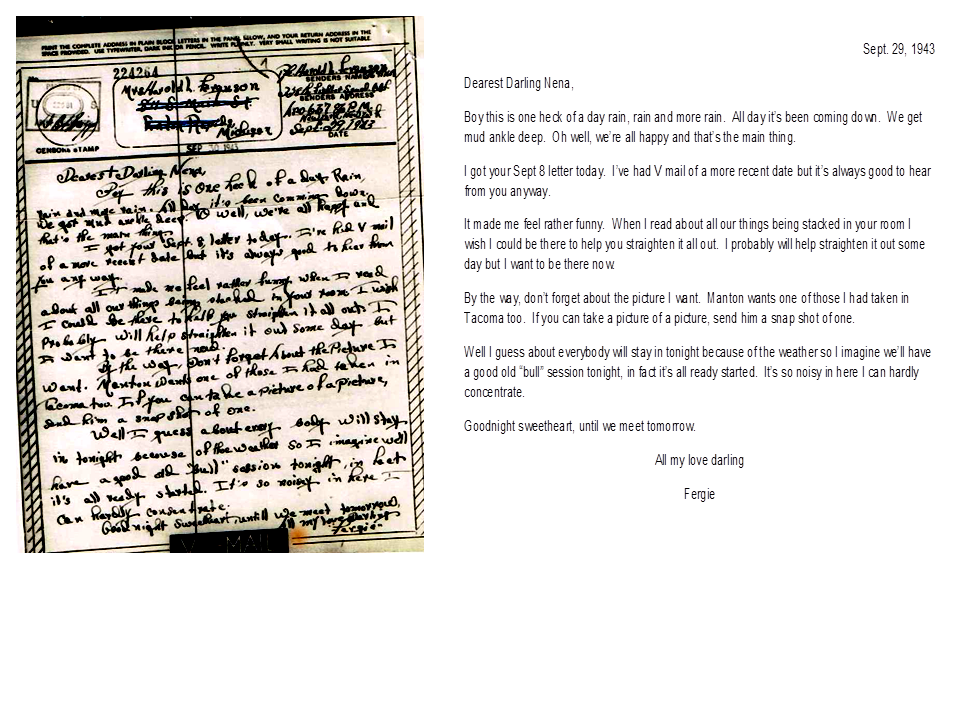 PRINT THE COMPLETE ADDRESS IN PLAIN BLOCK LETTERS IN THE PANEL BELOW, AND YOUR RETURN ADDRESS IN THE
SPACE PROVIDED. USE TYPEWRITER, DARK INK OR PENCIL. WRITE PLAINLY. VERY SMALL WRITING IS NOT SUITABLE.
224264
Mrs Harold L. Ferguson
Michigan
Harold L. Ferguson
SENDERS NAME
SENDERS ADDRESS
DATE
CENSORS STAMP
SEP 30 1943
Dearest Darling Nena,
Boy this is one heck of a day Rain,
rain and more rain. All day it's been comming down.
We get mud ankle deep. Oh well, we're all happy and
that's the main thing.
I got your Sept. 8 letter today. I've had V mail
of a more recent date but it's always good to hear from
you any way.
It made me feel rather funny when I read
about all our things being stacked in your room I wish
I could be there to help you straighten it all out. I
Probably will help straighten it out some day but
I want to be there now.
By the way, don't forget about the Picture I
want. Manton wants one of those I had taken in
Tacoma too. If you can take a picture of a picture,
send him a snap shot of one.
Well I guess about every body will stay
in tonight because of the weather so I imagine we'll
have a good old "bull" session tonight, in fact
it's all ready started. It's so noisy in here I
can hardly concentrate.
Good night sweetheart, untill we meet tomorrow,
All my love darling
Fergie
V-MAIL
Sept. 29, 1943
Dearest Darling Nena,
Boy this is one heck of a day rain, rain and more rain. All day it's been coming down. We get
mud ankle deep. Oh well, we're all happy and that's the main thing.
I got your Sept 8 letter today. I've had V mail of a more recent date but it's always good to hear
from you anyway.
It made me feel rather funny. When I read about all our things being stacked in your room I
wish I could be there to help you straighten it all out. I probably will help straighten it out some
day but I want to be there now.
By the way, don't forget about the picture I want. Manton wants one of those I had taken in
Tacoma too. If you can take a picture of a picture, send him a snap shot of one.
Well I guess about everybody will stay in tonight because of the weather so I imagine we'll have
a good old "bull" session tonight, in fact it's all ready started. It's so noisy in here I can hardly
concentrate.
Goodnight sweetheart, until we meet tomorrow.
All my love darling
Fergie